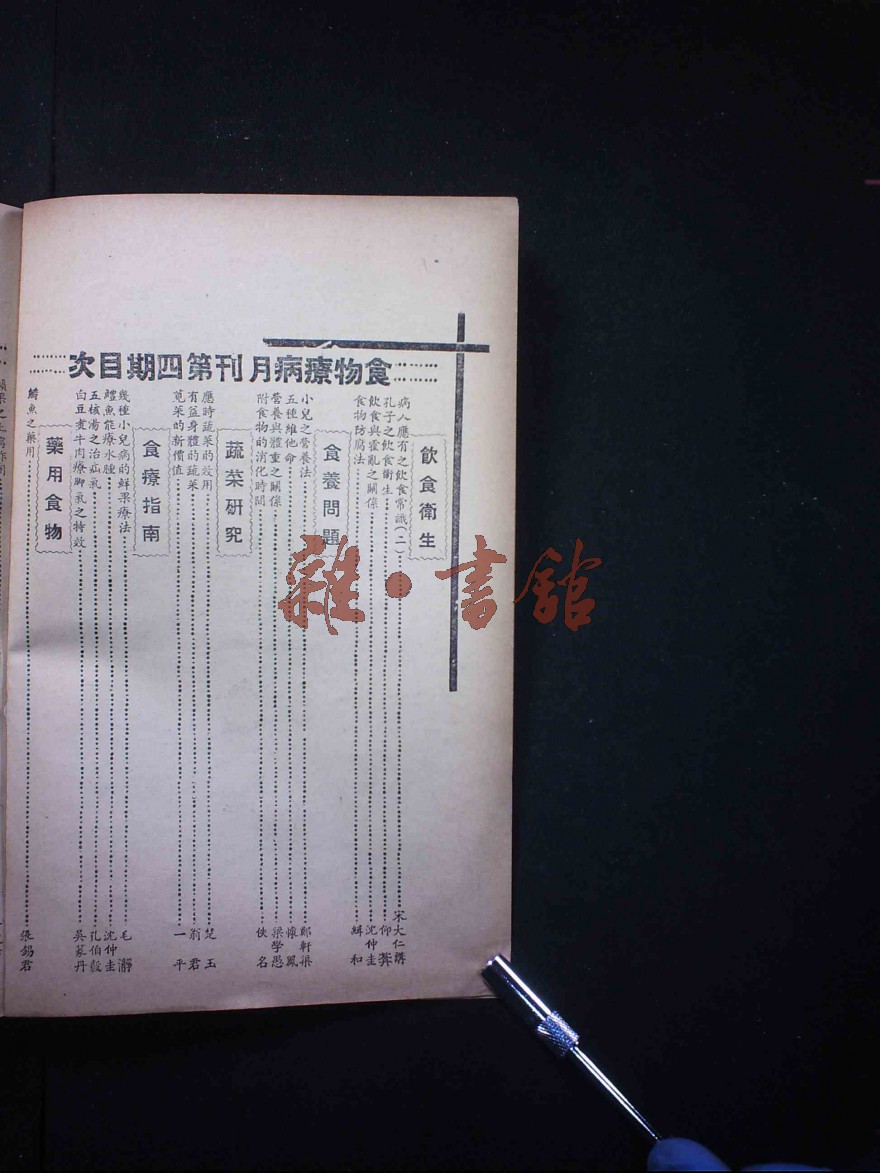 食物療病月刊第四期目次
飲食衛生
病人應有之飲食常識(二) 宋大仁講
孔子之飲食衛生 仰葊
飲食與霍亂之關係 沈仲圭
食物防腐法 緝和
食養問題
小兒之營養法 鄭軒渠
五種維他命 懷鳳
營養與體重之關係 梁學愚
附食物的消化時間 佚名
蔬菜研究
應時蔬菜的效用 楚玉
有益身體的蔬菜 翁君
莧菜的新價值 一平
食療指南
幾種小兒病的鮮果療法 毛瀞
鱧魚能療水腫 沈仲圭
五核湯之治疝氣 孔伯毅
白豆煮牛肉療脚氣之特效 吳篆丹
藥用食物
鱗魚之藥用 張錫君
雜·書館